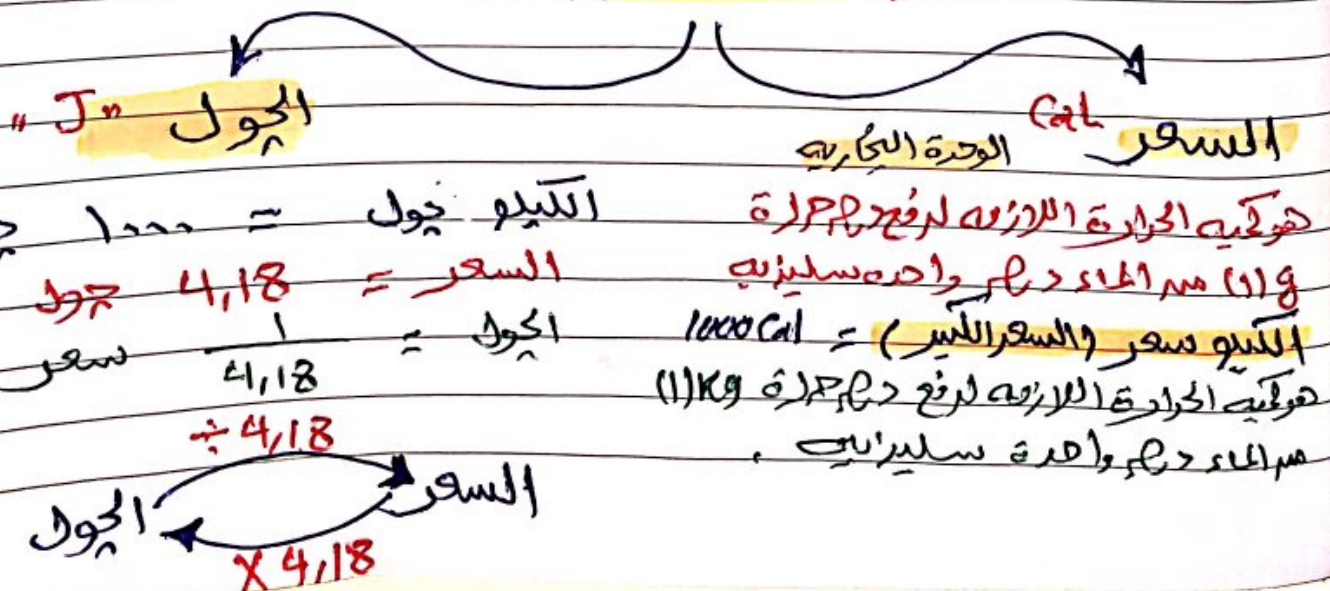 السعر Cal
الوحدة التجارية
هو كمية الحرارة اللازمة لرفع درجة حرارة
(1) g من الماء درجة واحدة سليزية
الكيلو سعر (السعر الكبير) = 1000 Cal
هو كمية الحرارة اللازمة لرفع درجة حرارة (1) Kg
من الماء درجة واحدة سليزية .
الجول "J"
الكيلو جول = ١٠٠٠
السعر = 4,18 جول
الجول = 1/4,18 سعر
÷ 4,18
الجول السعر
X 4,18